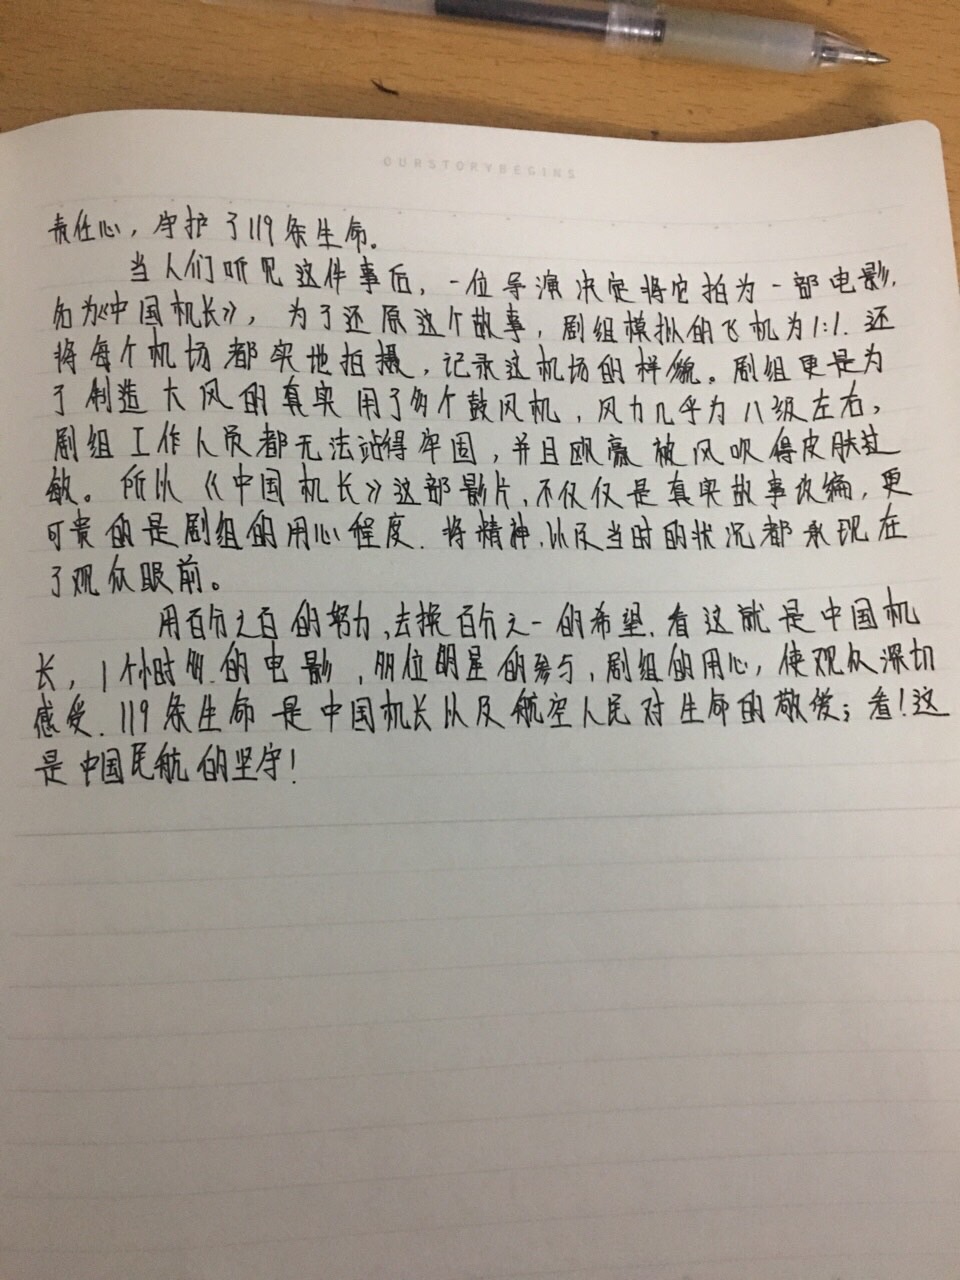 OURSTORYBEGINS
责任心，守护了119条生命。
当人们听见这件事后，一位导演决定将它拍为一部电影，
名为《中国机长》，为了还原这个故事，剧组模拟的飞机为1:1.还
将每个机场都实地拍摄，记录这机场的样貌。剧组更是为
了制造大风的真实用了多个鼓风机，风力几乎为八级左右，
剧组工作人员都无法站得牢固，并且欧豪被风吹得皮肤过
敏。所以《中国机长》这部影片，不仅仅是真实故事改编，更
可贵的是剧组的用心程度.将精神、以及当时的状况都承现在
了观众眼前。
用百分之百的努力、去换百分之一的希望.看这就是中国机
长，1个小时多.的电影，多位明星的参与，剧组的用心，使观众深切
感受.119条生命是中国机长以及航空人民对生命的敬爱；看！这
是中国民航的坚守！